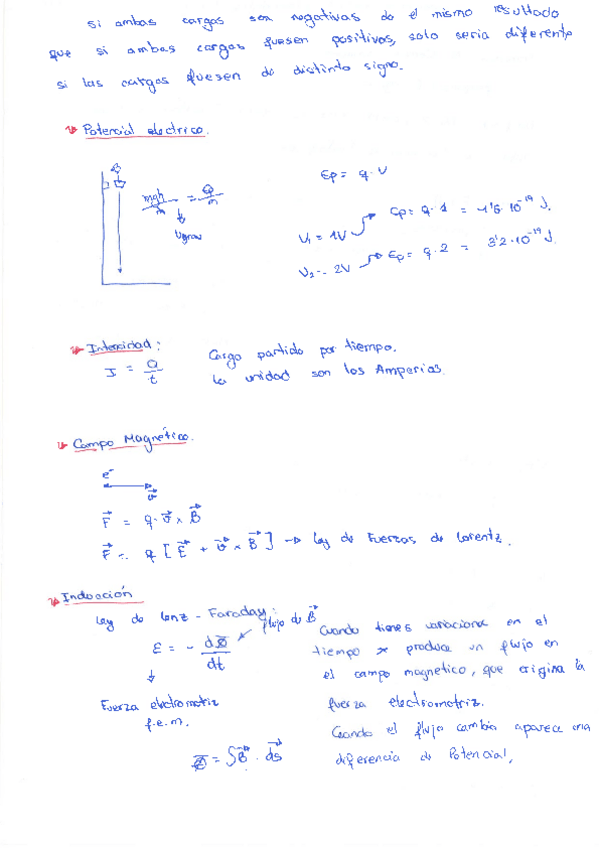 si ambas cargas son negativas da el mismo resultado
que si ambas cargas fuesen positivas, solo seria diferente
si las cargas fuesen de distinto signo.
Potencial electrico.
Ep = q · V
mgh/m = Ep/m
Ugrav
V₁ = 1V Ep = q · 1 = -1'6 · 10⁻¹⁹ J.
V₂ = 2V Ep = q · 2 = 3'2 · 10⁻¹⁹ J.
Intensidad:
I = Q/t
Carga partido por tiempo.
la unidad son los Amperios.
Campo Magnético.
e⁻
v⃗
F⃗ = q · v⃗ × B⃗
F⃗ = q [E⃗ + v⃗ × B⃗] → ley de Fuerzas de Lorentz.
Inducción
ley de Lenz - Faraday:
flujo de B⃗
ε = - dΦ/dt
Fuerza electromotriz
f.e.m.
Φ = ∫B⃗ · ds⃗
Cuando tienes variaciones en el
tiempo se produce un flujo en
el campo magnetico, que origina la
fuerza electromotriz.
Cuando el flujo cambia aparece una
diferencia de Potencial,